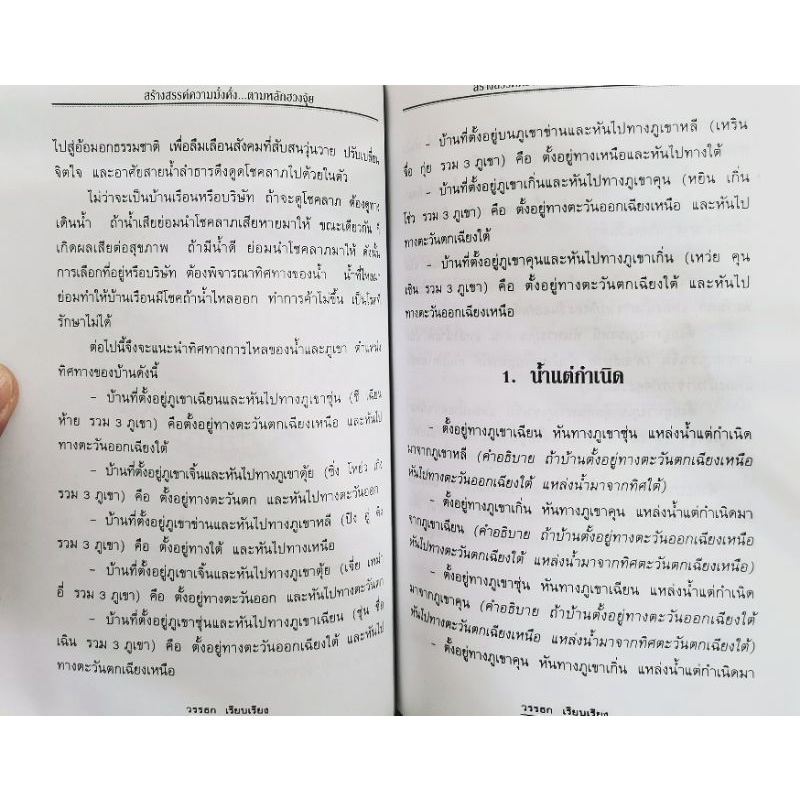 สร้างสรรค์ความมั่งคั่ง...ตามหลักฮวงจุ้ย
ไปสู่อ้อมอกธรรมชาติ เพื่อลืมเลือนสังคมที่สับสนวุ่นวาย ปรับเปลี่ยน
จิตใจ และอาศัยสายน้ำลำธารดึงดูดโชคลาภไปด้วยในตัว
ไม่ว่าจะเป็นบ้านเรือนหรือบริษัท ถ้าจะดูโชคลาภ ต้องดูทาง
เดินน้ำ ถ้าน้ำเสียย่อมนำโชคลาภเสียหายมาให้ ขณะเดียวกัน
เกิดผลเสียต่อสุขภาพ ถ้ามีน้ำดี ย่อมนำโชคลาภมาให้ ดังนั้น
การเลือกที่อยู่หรือบริษัท ต้องพิจารณาทิศทางของน้ำ น้ำที่ไหลมา
ย่อมทำให้บ้านเรือนมีโชคถ้าน้ำไหลออก ทำการค้าไม่ขึ้น เป็นโรคที่
รักษาไม่ได้
ต่อไปนี้จึงจะแนะนำทิศทางการไหลของน้ำและภูเขา ตำแหน่ง
ทิศทางของบ้านดังนี้
- บ้านที่ตั้งอยู่ภูเขาเฉียนและหันไปทางภูเขาซุ่น (ชี เฉียน
ห้าย รวม 3 ภูเขา) คือตั้งอยู่ทางตะวันตกเฉียงเหนือ และหันไป
ทางตะวันออกเฉียงใต้
- บ้านที่ตั้งอยู่ภูเขาเจิ้นและหันไปทางภูเขาตุ้ย (ซิ่ง โหย่ว เกิง
รวม 3 ภูเขา) คือ ตั้งอยู่ทางตะวันตก และหันไปทางตะวันออก
- บ้านที่ตั้งอยู่ภูเขาข่านและหันไปทางภูเขาหลี (ปิ่ง อู่
รวม 3 ภูเขา) คือ ตั้งอยู่ทางใต้ และหันไปทางเหนือ
- บ้านที่ตั้งอยู่ภูเขาเจิ้นและหันไปทางภูเขาตุ้ย (เจี่ย เหม่า
อี่ รวม 3 ภูเขา) คือ ตั้งอยู่ทางตะวันออก และหันไปทางตะวันตก
- บ้านที่ตั้งอยู่ภูเขาซุ่นและหันไปทางภูเขาเฉียน (ซุ่น ซื่อ
เฉิน รวม 3 ภูเขา) คือ ตั้งอยู่ทางตะวันออกเฉียงใต้ และหันไป
ทางตะวันตกเฉียงเหนือ
วรรธก เรียบเรียง
- บ้านที่ตั้งอยู่บนภูเขาข่านและหันไปทางภูเขาหลี (เหริน
จื่อ กุ่ย รวม 3 ภูเขา) คือ ตั้งอยู่ทางเหนือและหันไปทางใต้
- บ้านที่ตั้งอยู่ภูเขาเกิ่นและหันไปทางภูเขาคุน (หยิน เกิ่น
โช่ว รวม 3 ภูเขา) คือ ตั้งอยู่ทางตะวันออกเฉียงเหนือ และหันไป
ทางตะวันตกเฉียงใต้
- บ้านที่ตั้งอยู่ภูเขาคุนและหันไปทางภูเขาเกิ่น (เหว่ย คุน
เซิน รวม 3 ภูเขา) คือ ตั้งอยู่ทางตะวันตกเฉียงใต้ และหันไป
ทางตะวันออกเฉียงเหนือ
1. น้ำแต่กำเนิด
- ตั้งอยู่ทางภูเขาเฉียน หันทางภูเขาซุ่น แหล่งน้ำแต่กำเนิด
มาจากภูเขาหลี (คำอธิบาย ถ้าบ้านตั้งอยู่ทางทิศตะวันตกเฉียงเหนือ
หันไปทางตะวันออกเฉียงใต้ แหล่งน้ำมาจากทิศใต้)
- ตั้งอยู่ทางภูเขาเกิ่น หันทางภูเขาคุน แหล่งน้ำแต่กำเนิดมา
จากภูเขาเฉียน (คำอธิบาย ถ้าบ้านตั้งอยู่ทางตะวันออกเฉียงเหนือ
หันไปทางตะวันตกเฉียงใต้ แหล่งน้ำมาจากทิศตะวันตกเฉียงเหนือ)
- ตั้งอยู่ทางภูเขาซุ่น หันทางภูเขาเฉียน แหล่งน้ำแต่กำเนิด
มาจากภูเขาคุน (คำอธิบาย ถ้าบ้านตั้งอยู่ทางตะวันออกเฉียงใต้
หันไปทางตะวันตกเฉียงเหนือ แหล่งน้ำมาจากทิศตะวันตกเฉียงใต้)
- ตั้งอยู่ทางภูเขาคุน หันทางภูเขาเกิ่น แหล่งน้ำแต่กำเนิดมา
วรรธก เรียบเรียง